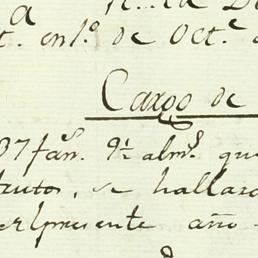 a
t. en 1.º de Oct.e
Cargo de
37 fan.s 9½ alm.s que
frutos, se hallar
el presente año